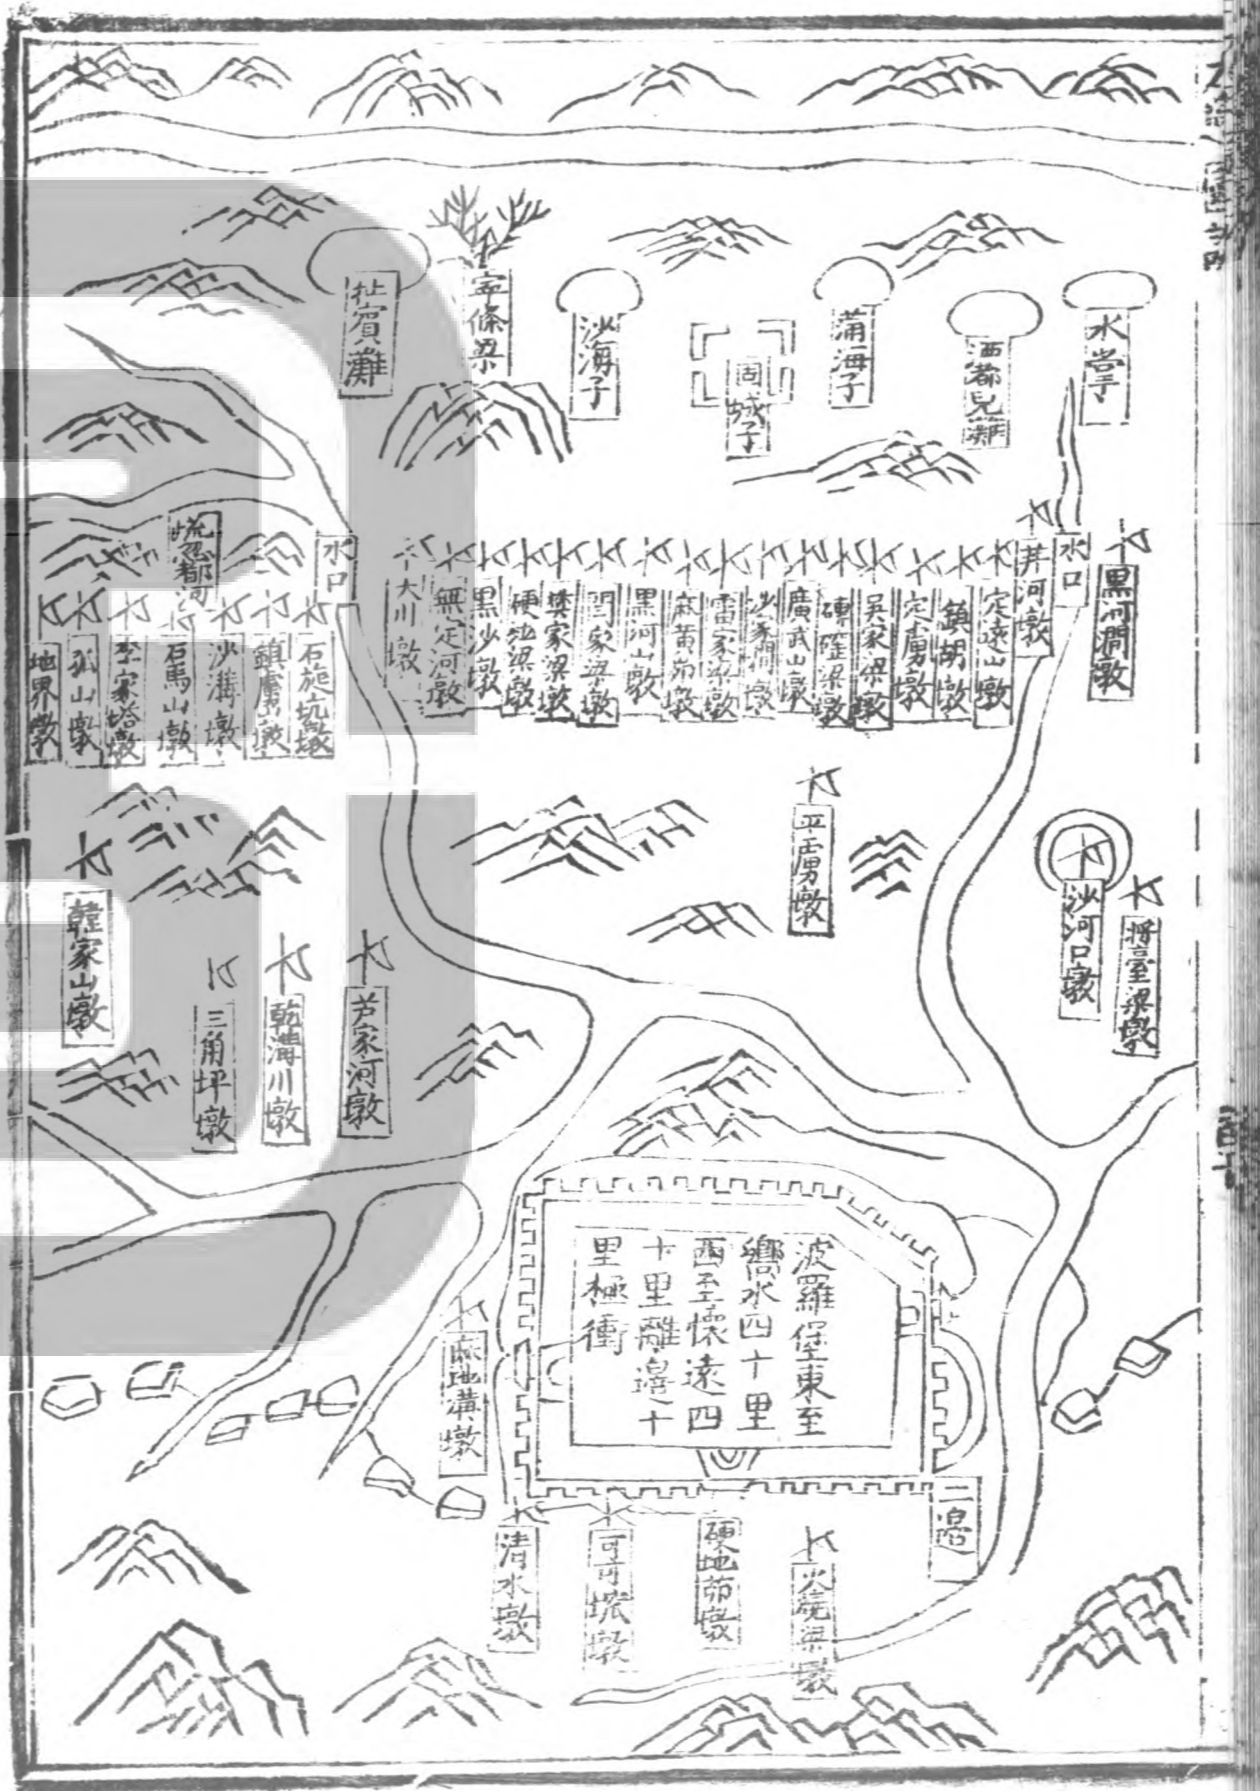 水掌
洒都兒灘
蒲海子
周城子
沙海子
寧條梁
扯賓灘
黑河澗墩
水口
井河墩
定遠山墩
鎮胡墩
定虜墩
吳家梁墩
磚窑梁墩
廣武山墩
沙家澗墩
雷家梁墩
麻黃峁墩
黑河山墩
閆家梁墩
樊家梁墩
硬地梁墩
黑沙墩
無定河墩
大川墩
水口
石旋坑墩
鎮虜墩
沙溝墩
石馬山墩
李家塔墩
孤山墩
地界墩
平虜墩
沙河口墩
將臺梁墩
芦家河墩
乾溝川墩
三角坪墩
韓家山墩
波羅堡東至
嚮水四十里
西至懷遠四
十里離邊十
里極衝
麻地溝墩
二邊
火燒梁墩
硬地峁墩
清水墩